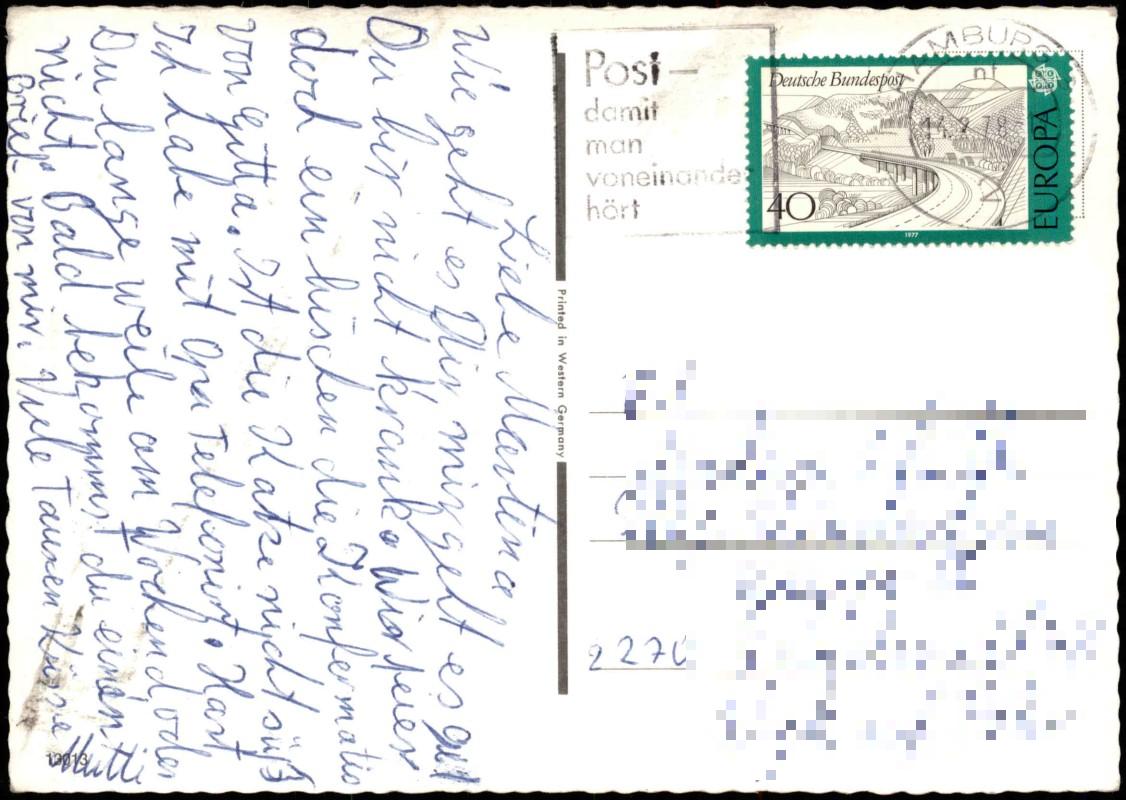 Liebe Martina
Wie geht es Dir mir geht es gut
Du bir nicht krank. Wir feier
dord ein bischen die Konfermatio
von Gitta. Ist die Katze nicht süß
Ich habe mit Opa Telefonirt. Hast
Du lange weile am Wochend oder
nicht. Bald bekommst du einen
Brief von mir. Viele Tausen Küsse
Mutti
13013
Printed in Western Germany
Post –
damit
man
voneinander
hört
HAMBURG
nf
14.9.78
Deutsche Bundespost
40
EUROPA
1977
2270